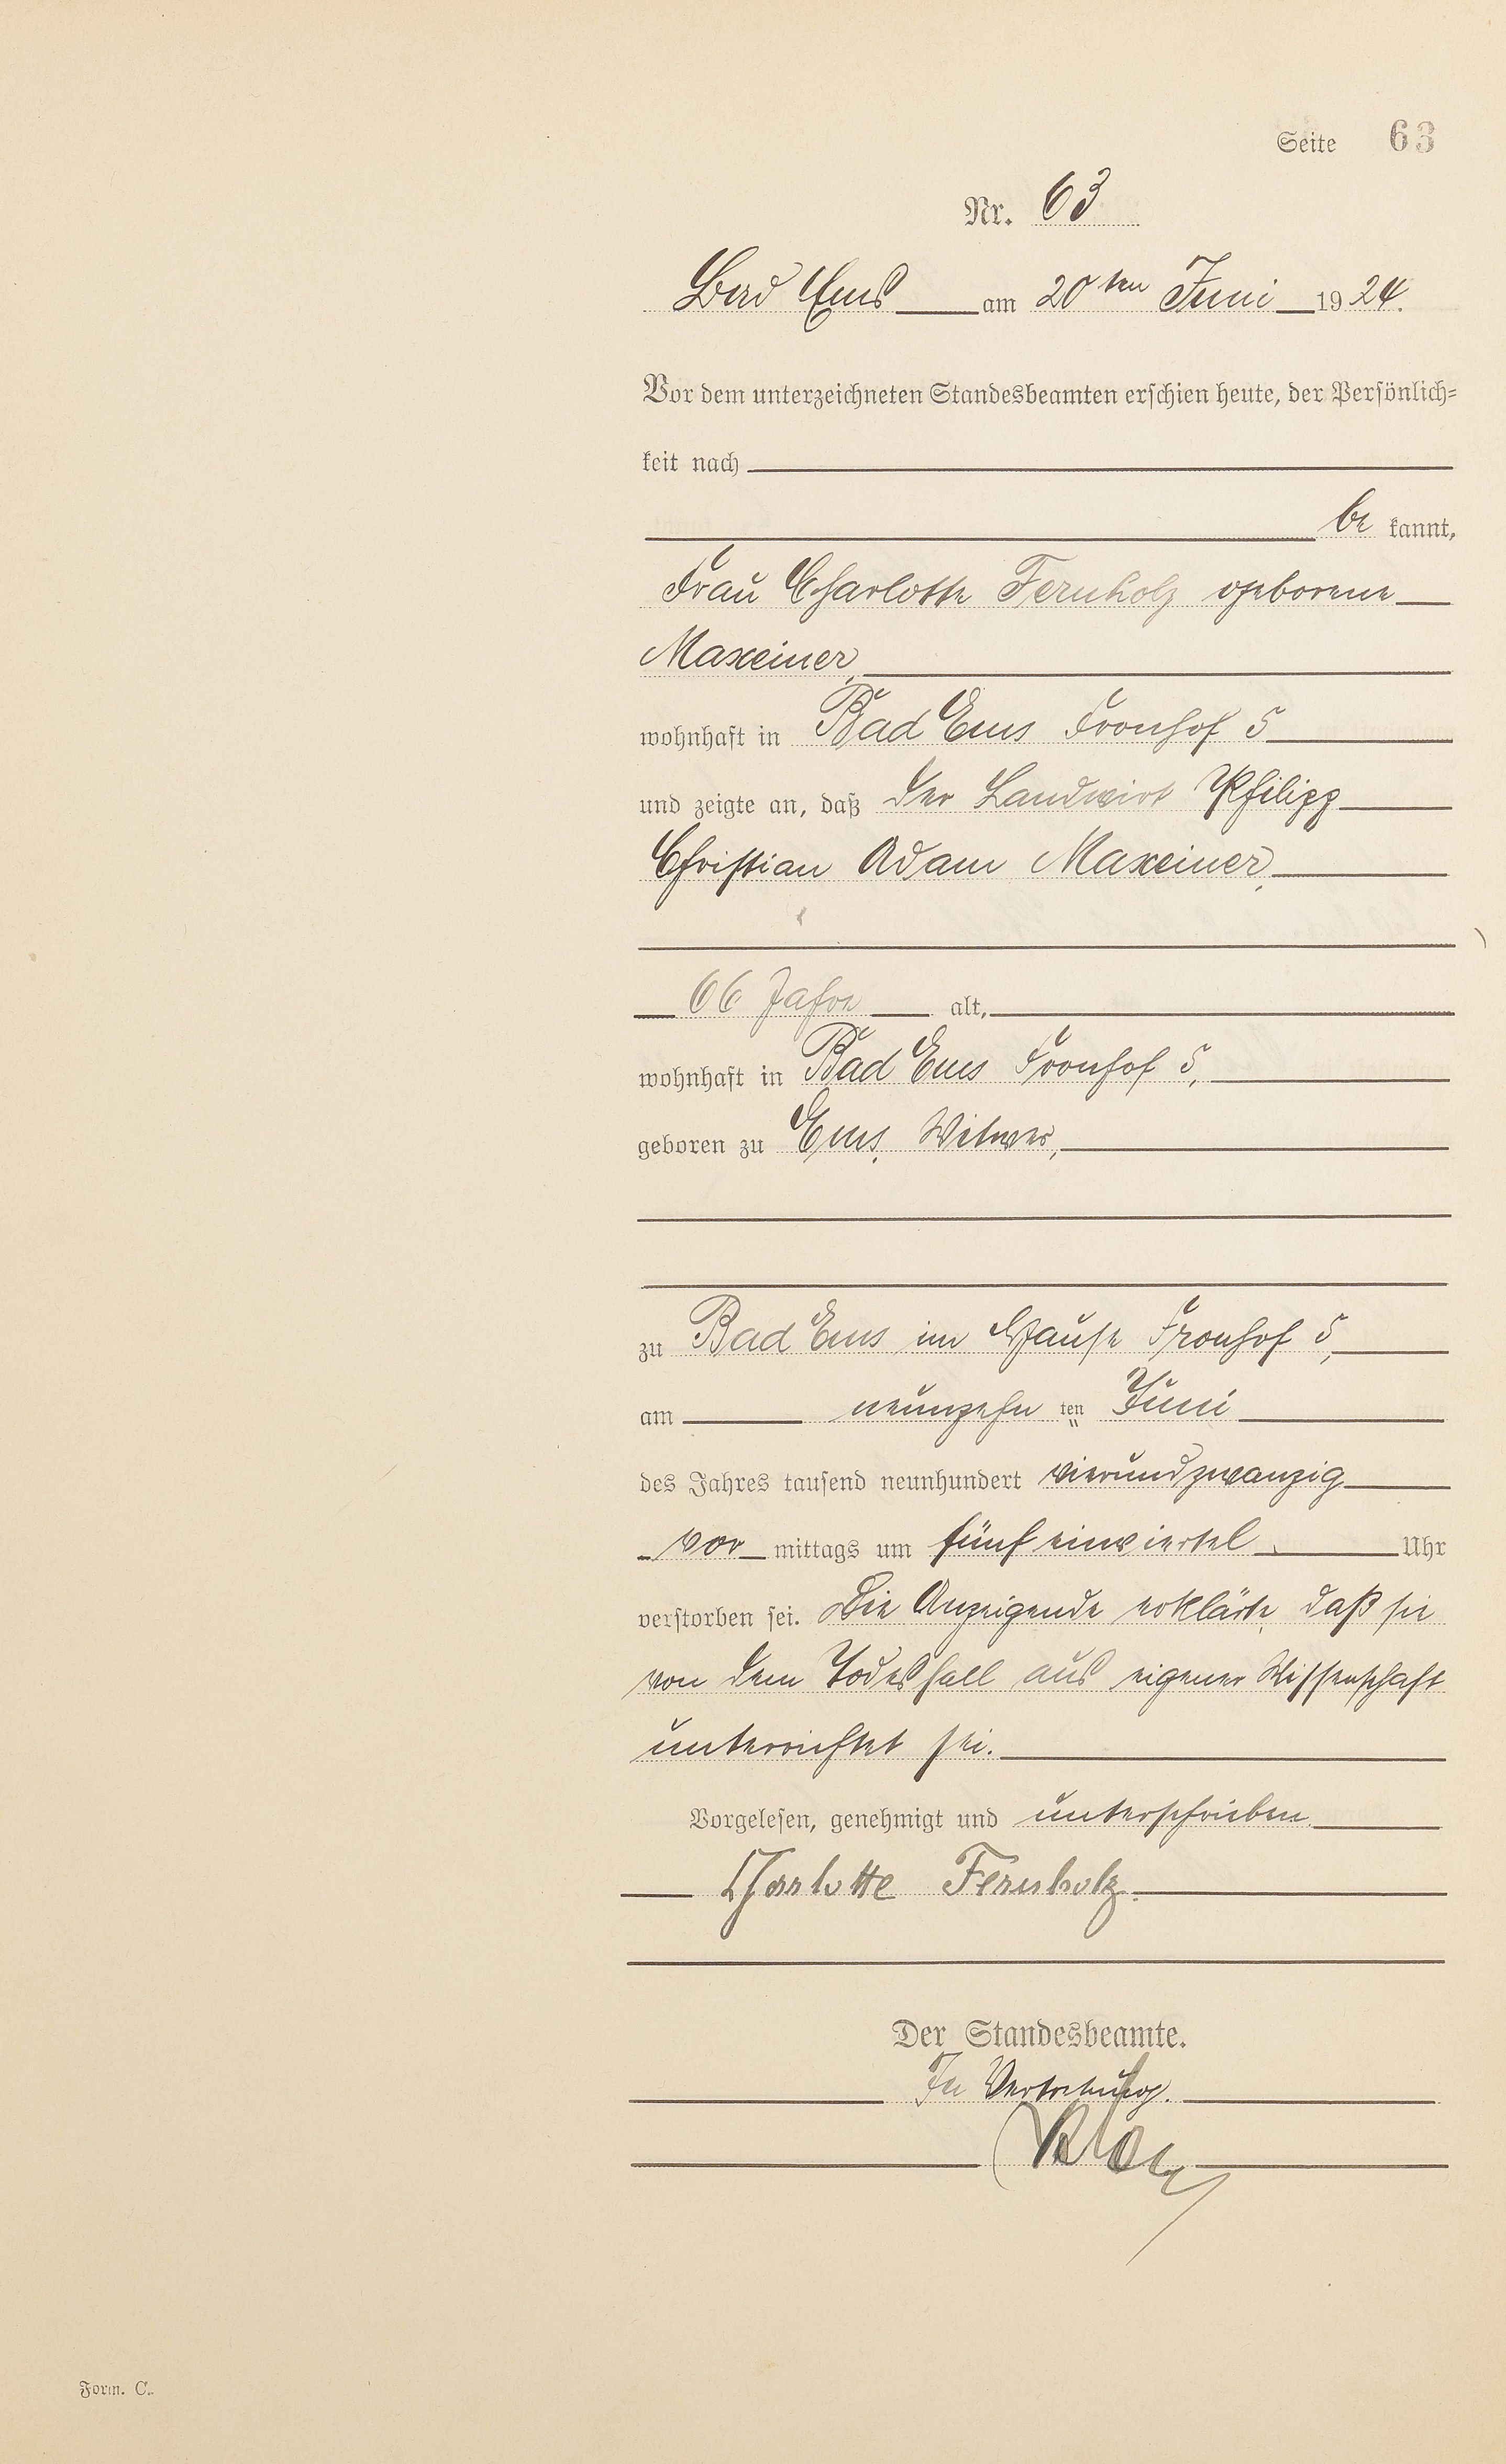 Seite 63
Nr. 63
Bad Ems am 20ten Juni 1924.
Vor dem unterzeichneten Standesbeamten erschien heute, der Persönlich-
keit nach
be kannt,
Frau Charlotte Fernholz geborene
Maxeiner,
wohnhaft in Bad Ems Fronhof 5
und zeigte an, daß der Landwirt Philipp
Christian Adam Maxeiner,
66 Jahre alt,
wohnhaft in Bad Ems Fronhof 5,
geboren zu Ems, Witwer,
zu Bad Ems im Hause Fronhof 5,
am neunzehn ten Juni
des Jahres tausend neunhundert vierundzwanzig
vor mittags um fünf einviertel Uhr
verstorben sei. Die Anzeigende erklärte, daß sie
von dem Todesfall aus eigener Wissenschaft
unterrichtet sei.
Vorgelesen, genehmigt und unterschrieben.
Charlotte Fernholz.
Der Standesbeamte.
In Vertretung.
Form. C.